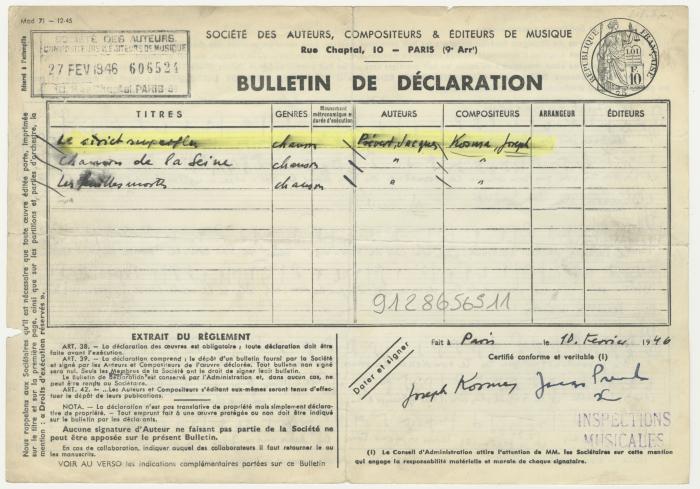 Mod 71 — 12-45
SOCIÉTÉ DES AUTEURS
COMPOSITEURS & ÉDITEURS DE MUSIQUE
27 FEV 1946 606524
10, Rue Chaptal PARIS 9e
SOCIÉTÉ DES AUTEURS, COMPOSITEURS & ÉDITEURS DE MUSIQUE
Rue Chaptal, 10 — PARIS (9e Arrt)
BULLETIN DE DÉCLARATION
RÉPUBLIQUE FRANÇAISE
LOI
10 F
TITRES GENRES Mouvement métronomique et durée d'exécution AUTEURS COMPOSITEURS ARRANGEUR ÉDITEURS
Le strict superflu chanson Prévert, Jacques Kosma, Joseph
Chanson de la Seine chanson " "
Les feuilles mortes chanson " "
9128656511
Nous rappelons aux Sociétaires qu'il est nécessaire que toute œuvre éditée porte, imprimée
sur le titre et sur la première page, ainsi que sur les partitions et parties d'orchestre, la
mention : « Droits d'exécution réservés ».
EXTRAIT DU RÈGLEMENT
ART. 38. — La déclaration des œuvres est obligatoire ; toute déclaration doit être
faite avant l'exécution.
ART. 39. — La déclaration comprend ; le dépôt d'un bulletin fourni par la Société
et signé par les Auteurs et Compositeurs de l'œuvre déclarée. Tout bulletin non signé
sera nul. Seuls les Membres de la Société ont le droit de signer leur bulletin.
Le Bulletin de Déclaration est conservé par l'Administration et, dans aucun cas, ne
peut être rendu au Sociétaire.
ART. 42. — Les Auteurs et Compositeurs s'éditant eux-mêmes seront tenus d'effec-
tuer le dépôt de leurs publications.
NOTA. — La déclaration n'est pas translative de propriété mais simplement déclara-
tive de propriété. — Tout emprunt fait à une œuvre protégée ou non doit être indiqué
sur le bulletin par les déclarants.
Aucune signature d'Auteur ne faisant pas partie de la Société ne
peut être apposée sur le présent Bulletin.
En cas de collaboration, indiquer auquel des collaborateurs il faut retourner le ou
les manuscrits.
VOIR AU VERSO les indications complémentaires portées sur ce Bulletin
Fait à Paris le 10 Février 1946
Dater et signer
Certifié conforme et veritable (1)
Joseph Kosma Jacques Prévert
INSPECTIONS
MUSICALES
(1) Le Conseil d'Administration attire l'attention de MM. les Sociétaires sur cette mention
qui engage la responsabilité matérielle et morale de chaque signataire.